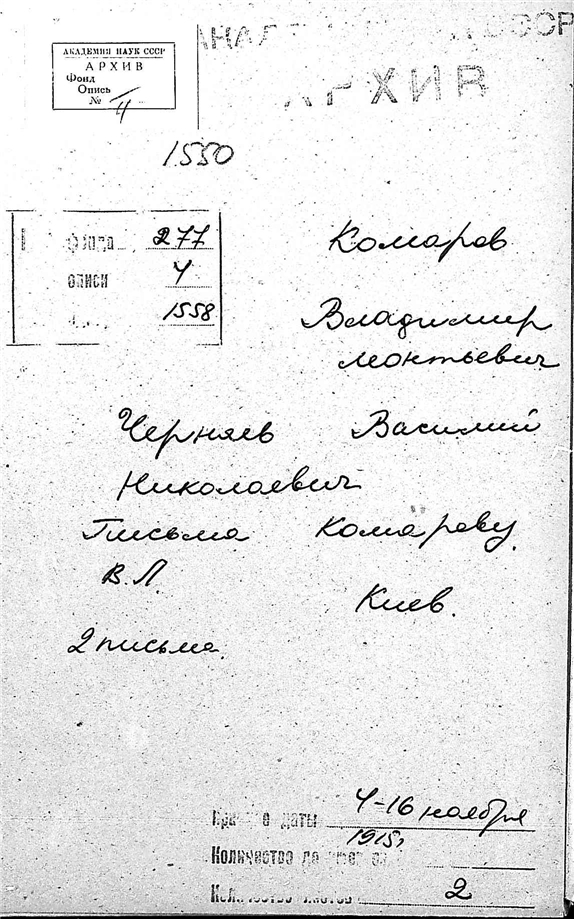 АКАДЕМИЯ НАУК СССР
АРХИВ
Фонд
Опись
№ 4
АРХИВ
1550
фонда 277
описи 4
1558
Комаров
Владимир
Леонтьевич
Черняев Василий
Николаевич
Письма Комарову
В.Л.
Киев.
2 письма.
Крайние даты 4-16 ноября
1915г
Количество
Количество листов 2